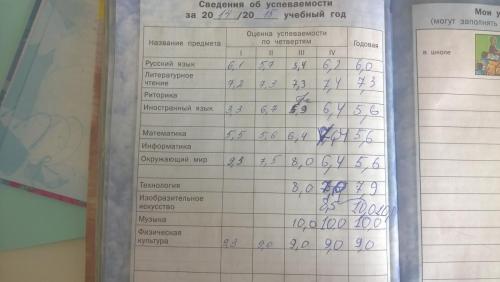 Сведения об успеваемости
за 20 14 /20 15 учебный год
Название предмета Оценка успеваемости по четвертям Годовая
I II III IV
Русский язык 6,1 5,7 5,4 6,2 6,0
Литературное
чтение 7,2 7,3 7,3 7,4 7,3
Риторика
Иностранный язык 3,3 6,7 5,9 6,4 5,6
Математика 5,5 5,6 6,4 5,6
Информатика
Окружающий мир 2,3 7,5 8,0 6,4 5,6
Технология 8,0 7,9
Изобразительное
искусство 8,5 10,0
Музыка 10,0 10,0 10,0
Физическая
культура 9,3 9,0 9,0 9,0 9,0
Мои у
(могут заполнять
в школе